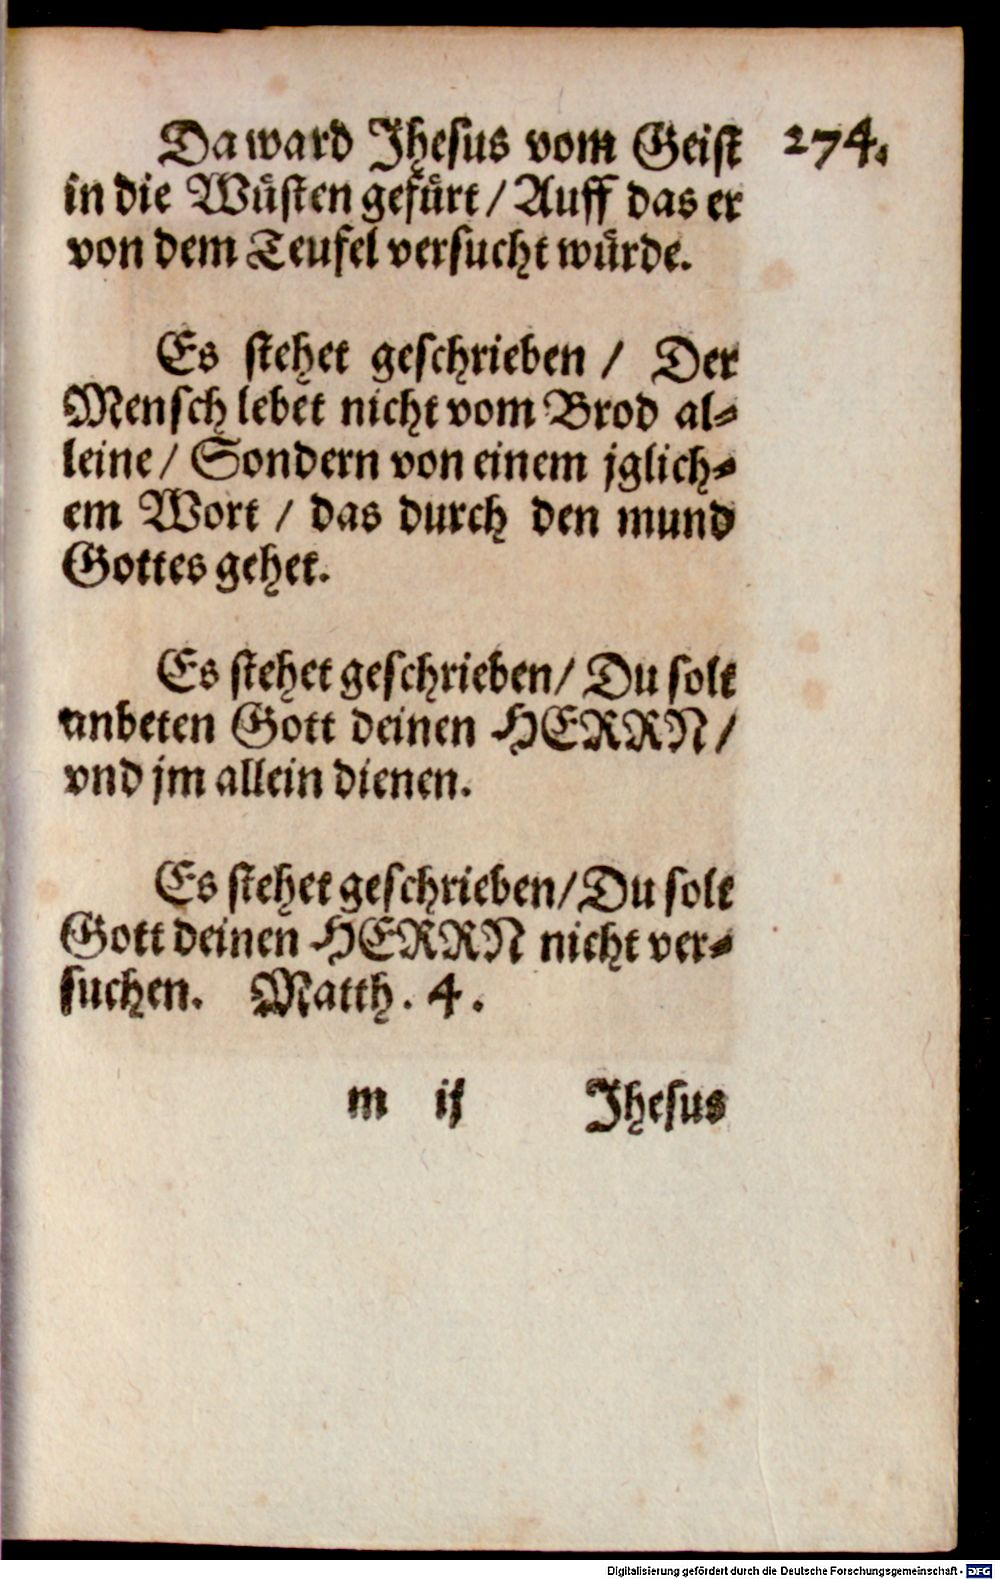 Da ward Jhesus vom Geist 274.
in die Wuͤsten gefuͤrt / Auff das er
von dem Teufel versucht wuͤrde.
Es stehet geschrieben / Der
Mensch lebet nicht vom Brod al-
leine / Sondern von einem jglich-
em Wort / das durch den mund
Gottes gehet.
Es stehet geschrieben / Du solt
anbeten Gott deinen HERRN /
vnd jm allein dienen.
Es stehet geschrieben / Du solt
Gott deinen HERRN nicht ver-
suchen. Matth. 4.
m ij Jhesus
Digitalisierung gefördert durch die Deutsche Forschungsgemeinschaft - DFG